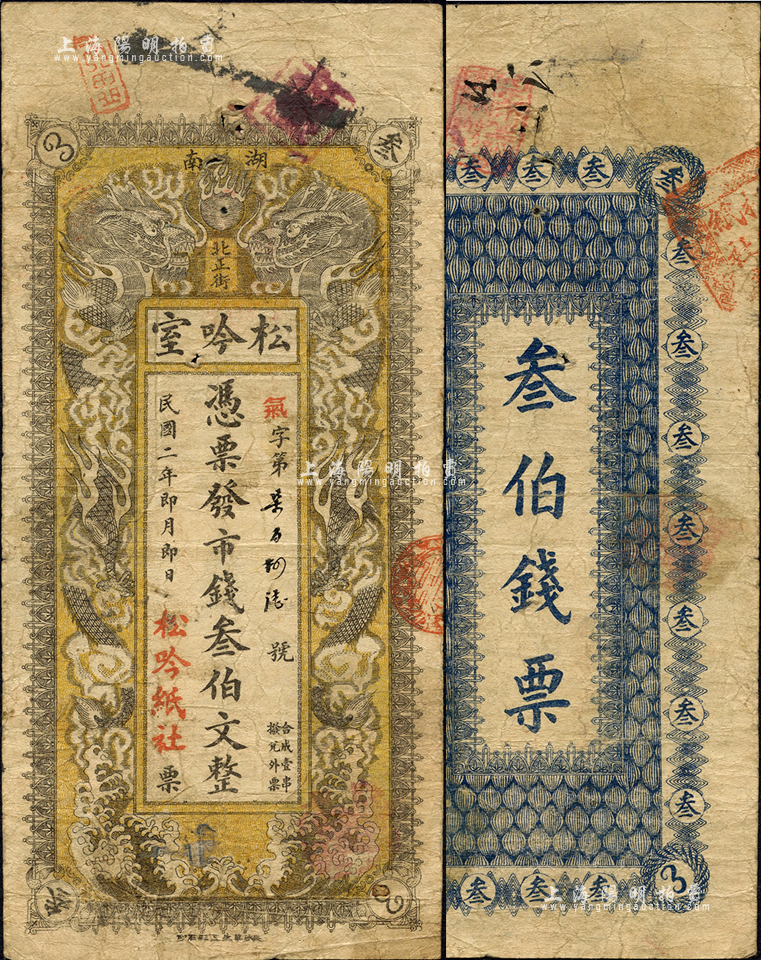 上海陽明拍賣
www.yangmingauction.com
湖南
3
叁
北正街
松吟室
氣字第 號
合成壹串
撥兌外票
憑票發市錢叁伯文整
民國二年即月即日
松吟紙社票
叁
3
叁 叁 叁 叁
叁
叁
叁
叁
叁
叁
叁
叁伯錢票
叁 叁 叁 3
上海陽明拍賣
www.yangmingauction.com
上海陽明拍賣
www.yangmingauction.com